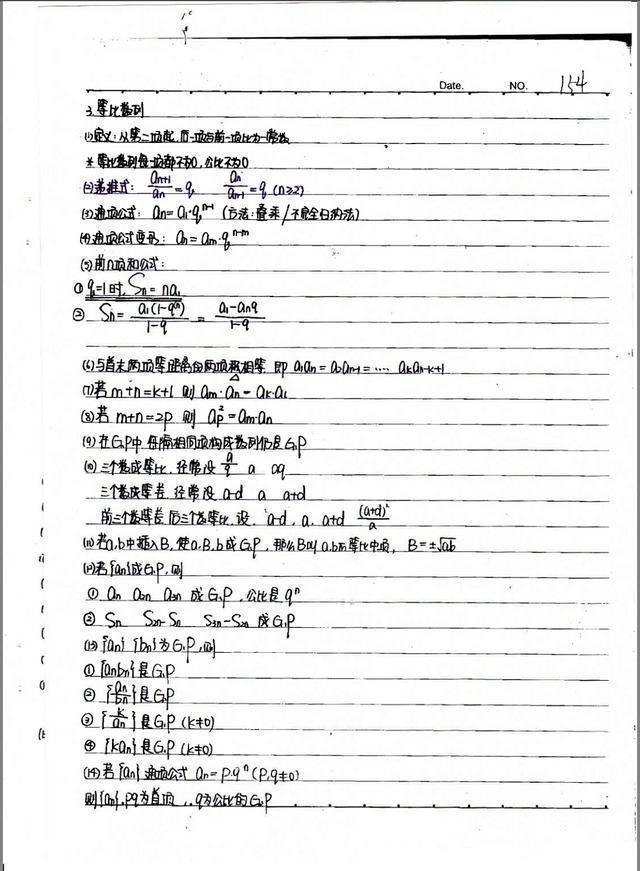 Date. NO. 154
3. 等比数列
(1)定义：从第二项起，后一项与前一项比为一常数
* 等比数列每一项都不为0，公比不为0
(2)递推式： an+1/an = q   an/an-1 = q (n≥2)
(3)通项公式： an=a1·q^n-1 (方法：叠乘/不完全归纳法)
(4)通项公式变形： an=am·q^n-m
(5)前n项和公式：
① q=1时, Sn=na1
② Sn= a1(1-q^n)/1-q = a1-anq/1-q
(6)与首末两项等距离的两项积相等 即 a1an=a2an-1=···· akan-k+1
(7)若 m+n=k+l 则 am·an=ak·al
(8)若 m+n=2p 则 ap²=am·an
(9)在G.P中 每隔相同项构成数列仍是G.P
(10)三个数成等比，经常设 a/q a aq
三个数成等差，经常设 a-d a a+d
前三个数等差后三个数等比，设 a-d, a, a+d (a+d)²/a
(11)若a,b中插入B，使a,B,b成G.P，那么B叫a,b的等比中项， B=±√ab
(12)若{an}成G.P，则
① an a2n a3n 成G.P，公比是q^n
② Sn S2n-Sn S3n-S2n 成G.P
(13){an} {bn}为G.P，则
① {anbn}是G.P
② {an/bn}是G.P
③ {k/an}是G.P (k≠0)
④ {kan}是G.P (k≠0)
(14)若{an}通项公式 an=p·q^n (p,q≠0)
则{an}，pq为首项，q为公比的G.P